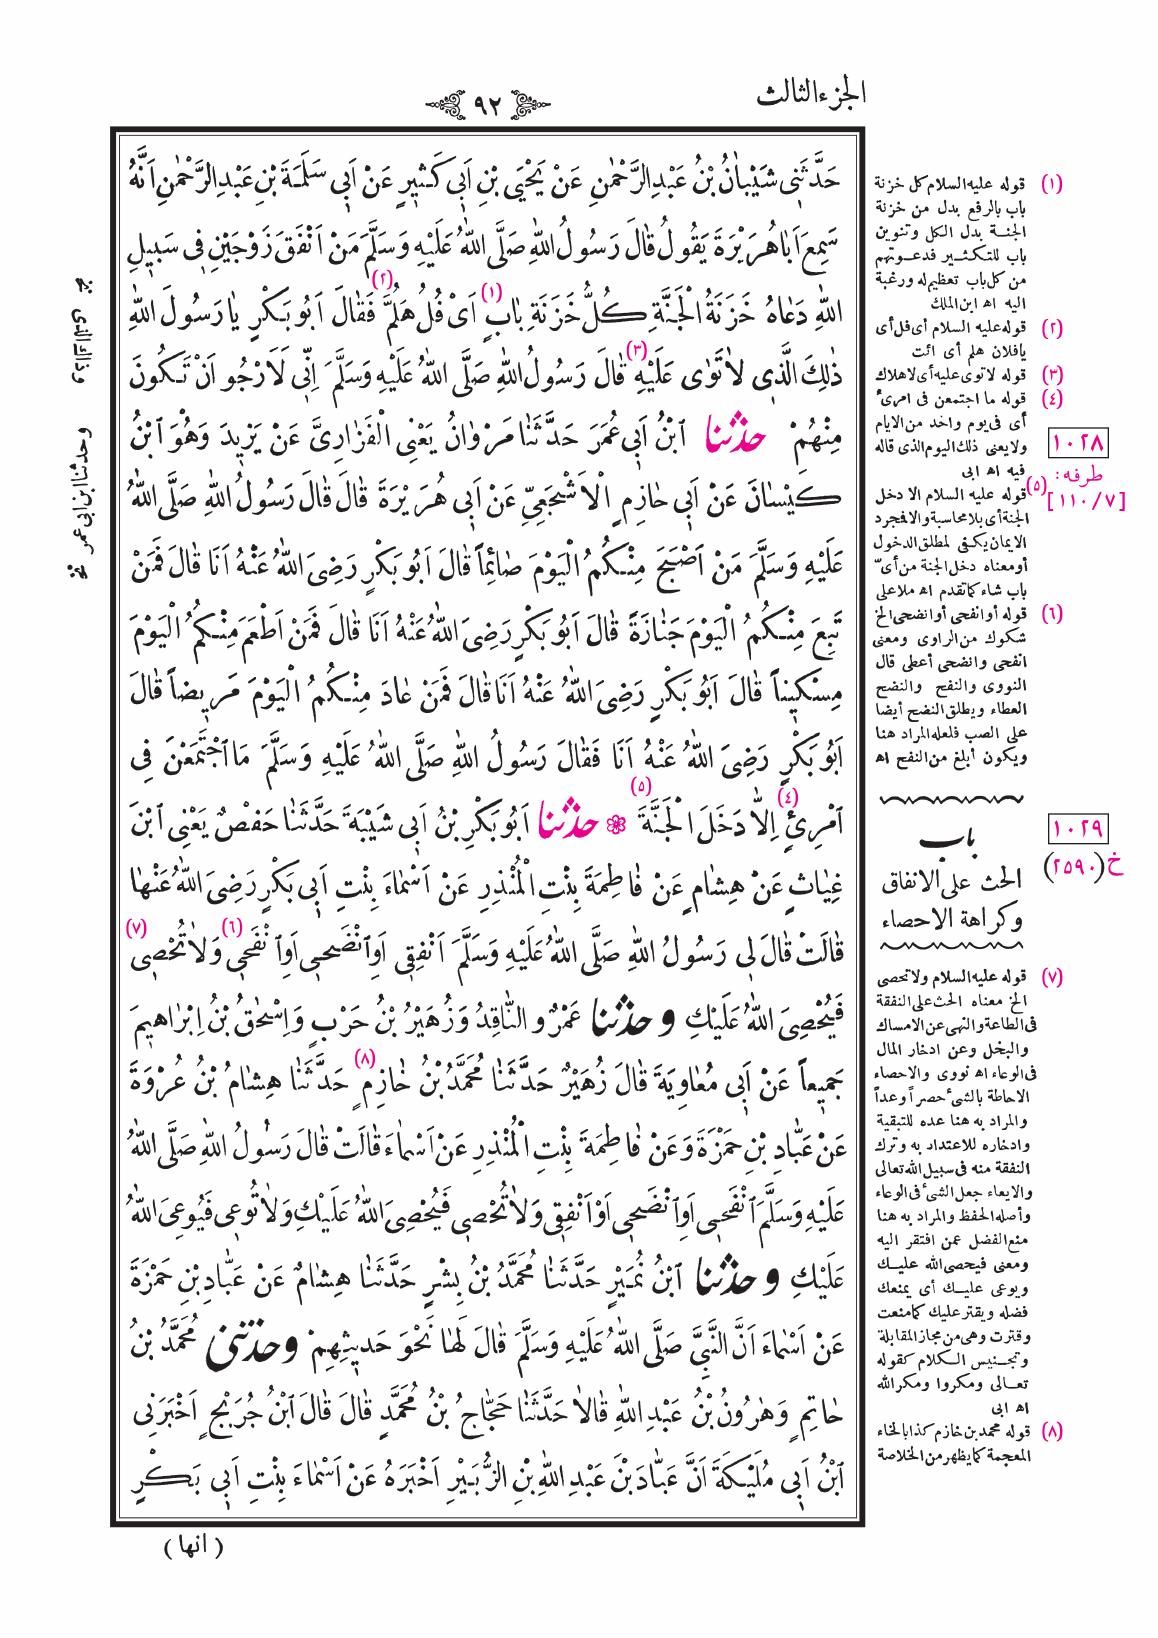 الجزء الثالث
٩٢
حَدَّثَنِي شَيْبَانُ بْنُ عَبْدِ الرَّحْمٰنِ عَنْ يَحْيَى بْنِ اَبِي كَثِيرٍ عَنْ اَبِي سَلَمَةَ بْنِ عَبْدِ الرَّحْمٰنِ اَنَّهُ
سَمِعَ اَبَا هُرَيْرَةَ يَقُولُ قَالَ رَسُولُ اللهِ صَلَّى اللهُ عَلَيْهِ وَسَلَّمَ مَنْ اَنْفَقَ زَوْجَيْنِ فِي سَبِيلِ
اللهِ دَعَاهُ خَزَنَةُ الْجَنَّةِ كُلُّ خَزَنَةِ بَابٍ (١) اَيْ فُلُ هَلُمَّ (٢) فَقَالَ اَبُو بَكْرٍ يَا رَسُولَ اللهِ
ذٰلِكَ الَّذِي لَا تَوٰى عَلَيْهِ (٣) قَالَ رَسُولُ اللهِ صَلَّى اللهُ عَلَيْهِ وَسَلَّمَ اِنِّي لَاَرْجُو اَنْ تَكُونَ
مِنْهُمْ حدثنا ابْنُ اَبِي عُمَرَ حَدَّثَنَا مَرْوَانُ يَعْنِي الْفَزَارِيَّ عَنْ يَزِيدَ وَهُوَ ابْنُ
كَيْسَانَ عَنْ اَبِي حَازِمٍ الْاَشْجَعِيِّ عَنْ اَبِي هُرَيْرَةَ قَالَ قَالَ رَسُولُ اللهِ صَلَّى اللهُ
عَلَيْهِ وَسَلَّمَ مَنْ اَصْبَحَ مِنْكُمُ الْيَوْمَ صَائِمًا قَالَ اَبُو بَكْرٍ رَضِيَ اللهُ عَنْهُ اَنَا قَالَ فَمَنْ
تَبِعَ مِنْكُمُ الْيَوْمَ جَنَازَةً قَالَ اَبُو بَكْرٍ رَضِيَ اللهُ عَنْهُ اَنَا قَالَ فَمَنْ اَطْعَمَ مِنْكُمُ الْيَوْمَ
مِسْكِينًا قَالَ اَبُو بَكْرٍ رَضِيَ اللهُ عَنْهُ اَنَا قَالَ فَمَنْ عَادَ مِنْكُمُ الْيَوْمَ مَرِيضًا قَالَ
اَبُو بَكْرٍ رَضِيَ اللهُ عَنْهُ اَنَا فَقَالَ رَسُولُ اللهِ صَلَّى اللهُ عَلَيْهِ وَسَلَّمَ مَا اجْتَمَعْنَ فِي
امْرِئٍ (٤) اِلَّا دَخَلَ الْجَنَّةَ (٥) ❁ حدثنا اَبُو بَكْرِ بْنُ اَبِي شَيْبَةَ حَدَّثَنَا حَفْصٌ يَعْنِي ابْنَ
غِيَاثٍ عَنْ هِشَامٍ عَنْ فَاطِمَةَ بِنْتِ الْمُنْذِرِ عَنْ اَسْمَاءَ بِنْتِ اَبِي بَكْرٍ رَضِيَ اللهُ عَنْهَا
قَالَتْ قَالَ لِي رَسُولُ اللهِ صَلَّى اللهُ عَلَيْهِ وَسَلَّمَ اَنْفِقِي اَوِ انْضَحِي اَوِ انْفَحِي (٦) وَلَا تُحْصِي (٧)
فَيُحْصِيَ اللهُ عَلَيْكِ وحدثنا عَمْرٌو النَّاقِدُ وَزُهَيْرُ بْنُ حَرْبٍ وَاِسْحٰقُ بْنُ اِبْرَاهِيمَ
جَمِيعًا عَنْ اَبِي مُعَاوِيَةَ قَالَ زُهَيْرٌ حَدَّثَنَا مُحَمَّدُ بْنُ خَازِمٍ (٨) حَدَّثَنَا هِشَامُ بْنُ عُرْوَةَ
عَنْ عَبَّادِ بْنِ حَمْزَةَ وَعَنْ فَاطِمَةَ بِنْتِ الْمُنْذِرِ عَنْ اَسْمَاءَ قَالَتْ قَالَ رَسُولُ اللهِ صَلَّى اللهُ
عَلَيْهِ وَسَلَّمَ انْفَحِي اَوِ انْضَحِي اَوْ اَنْفِقِي وَلَا تُحْصِي فَيُحْصِيَ اللهُ عَلَيْكِ وَلَا تُوعِي فَيُوعِيَ اللهُ
عَلَيْكِ وحدثنا ابْنُ نُمَيْرٍ حَدَّثَنَا مُحَمَّدُ بْنُ بِشْرٍ حَدَّثَنَا هِشَامٌ عَنْ عَبَّادِ بْنِ حَمْزَةَ
عَنْ اَسْمَاءَ اَنَّ النَّبِيَّ صَلَّى اللهُ عَلَيْهِ وَسَلَّمَ قَالَ لَهَا نَحْوَ حَدِيثِهِمْ وحدثني مُحَمَّدُ بْنُ
حَاتِمٍ وَهٰرُونُ بْنُ عَبْدِ اللهِ قَالَا حَدَّثَنَا حَجَّاجُ بْنُ مُحَمَّدٍ قَالَ قَالَ ابْنُ جُرَيْجٍ اَخْبَرَنِي
ابْنُ اَبِي مُلَيْكَةَ اَنَّ عَبَّادَ بْنَ عَبْدِ اللهِ بْنِ الزُّبَيْرِ اَخْبَرَهُ عَنْ اَسْمَاءَ بِنْتِ اَبِي بَكْرٍ
( انها )
(١) قوله عليه السلام كل خزنة
باب بالرفع بدل من خزنة
الجنة بدل الكل وتنوين
باب للتكثير فدعوتهم
من كل باب تعظيم له ورغبة
اليه اه ابن الملك
(٢) قوله عليه السلام أى فل أى
يافلان هلم أى ائت
(٣) قوله لا توى عليه أى لاهلاك
(٤) قوله ما اجتمعن فى امرئ
أى فى يوم واحد من الايام
ولا يعنى ذلك اليوم الذى قاله
فيه اه ابى
(٥) قوله عليه السلام الا دخل
الجنة أى بلا محاسبة والا فمجرد
الايمان يكفى لمطلق الدخول
أو معناه دخل الجنة من أىّ
باب شاء كما تقدم اه ملا على
(٦) قوله أو انفحى أو انضحى الخ
شكوك من الراوى ومعنى
انفحى وانضحى أعطى قال
النووى والنفح والنضح
العطاء ويطلق النضح أيضا
على الصب فلعله المراد هنا
ويكون أبلغ من النفح اه
باب
الحث على الانفاق
وكراهة الاحصاء
(٧) قوله عليه السلام ولا تحصى
الخ معناه الحث على النفقة
فى الطاعة والنهى عن الامساك
والبخل وعن ادخار المال
فى الوعاء اه نووى والاحصاء
الاحاطة بالشئ حصراً وعداً
والمراد به هنا عده للتبقية
وادخاره للاعتداد به وترك
النفقة منه فى سبيل الله تعالى
والايعاء جعل الشئ فى الوعاء
وأصله الحفظ والمراد به هنا
منع الفضل عمن افتقر اليه
ومعنى فيحصى الله عليك
ويوعى عليك أى يمنعك
فضله ويقتر عليك كما منعت
وقترت وهى من مجاز المقابلة
وتجنيس الكلام كقوله
تعالى ومكروا ومكر الله
اه ابى
(٨) قوله محمد بن خازم كذا بالخاء
المعجمة كما يظهر من الخلاصة
١٠٢٨
طرفه:
[١١٠/٧]
١٠٢٩
خ (٢٥٩٠)
وحدثنا ابن ابى عمر نخ